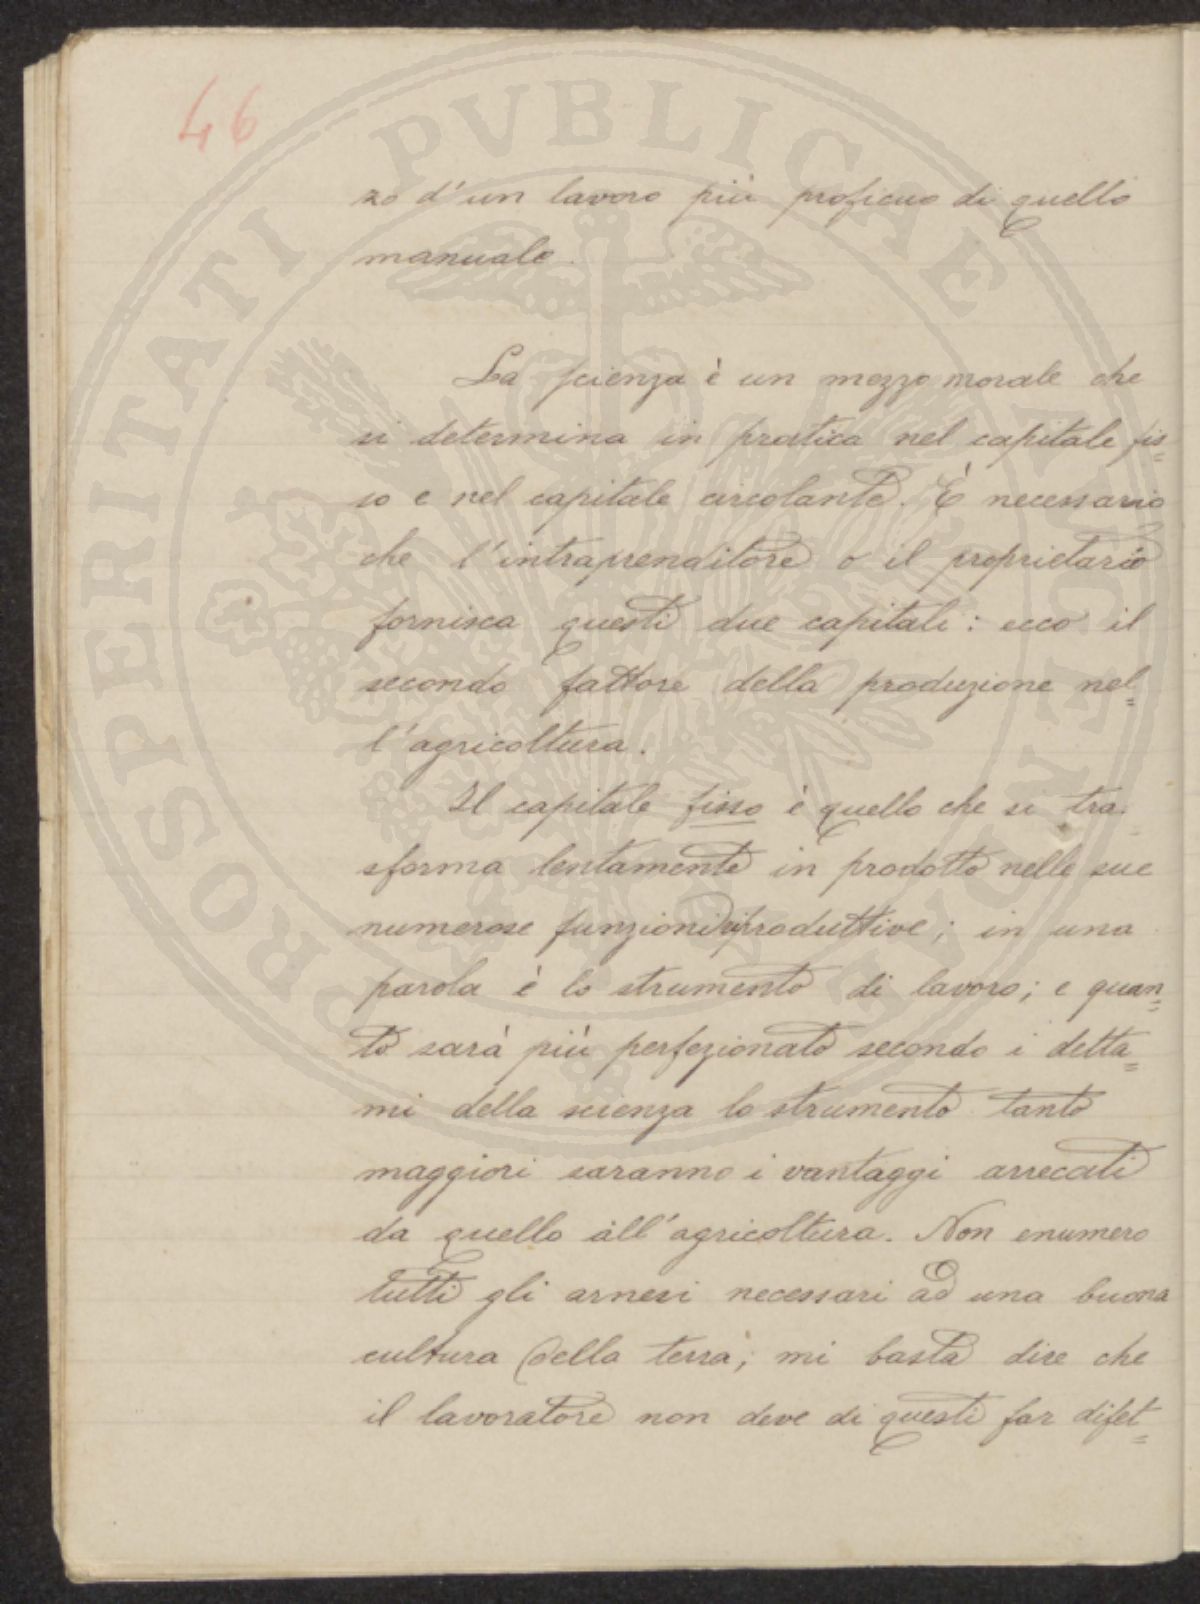 46
zo d'un lavoro più proficuo di quello
manuale.
La scienza è un mezzo morale che
si determina in pratica nel capitale fis=
so e nel capitale circolante. È necessario
che l'intraprenditore o il proprietario
fornisca questi due capitali: ecco il
secondo fattore della produzione nel=
l'agricoltura.
Il capitale fisso è quello che si tra=
sforma lentamente in prodotto nelle sue
numerose funzioni riproduttive; in una
parola è lo strumento di lavoro; e quan=
to sarà più perfezionato secondo i detta=
mi della scienza lo strumento tanto
maggiori saranno i vantaggi arrecati
da quello all'agricoltura. Non enumero
tutti gli arnesi necessari ad una buona
cultura della terra; mi basta dire che
il lavoratore non deve di questi far difet=
PROSPERITATI PVBLICAE AVGENDAE